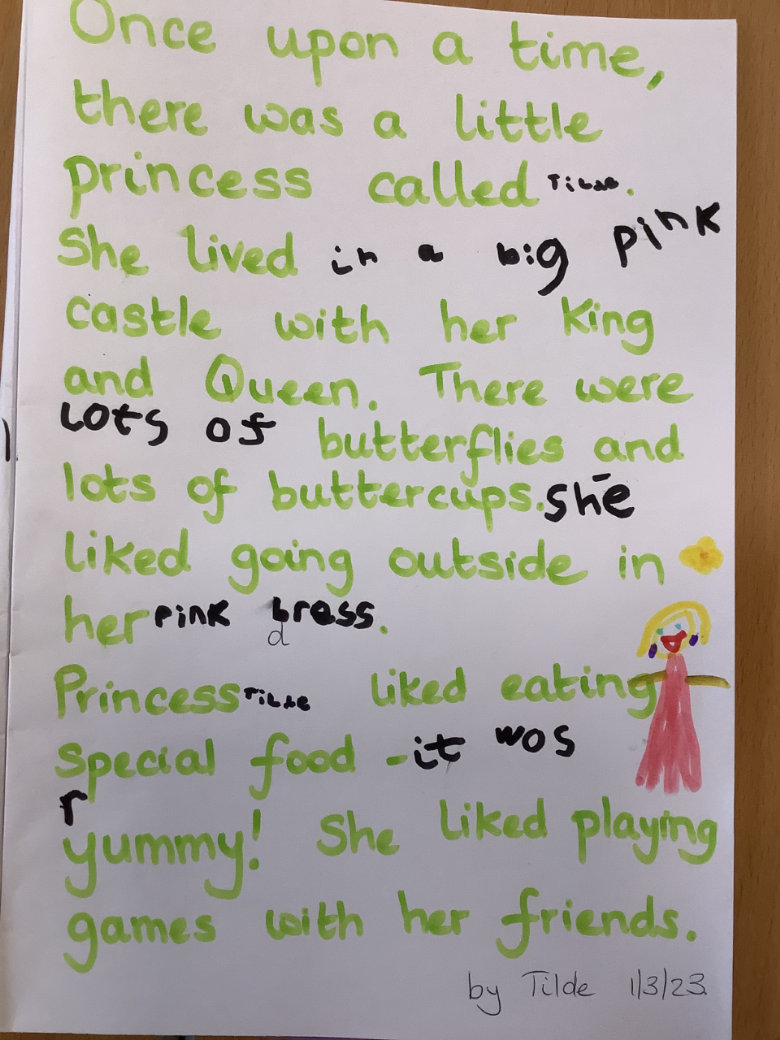 Once upon a time,
there was a little
princess called Tilde.
She lived in a big pink
castle with her King
and Queen. There were
Lots of butterflies and
lots of buttercups. she
liked going outside in
her pink bress.
d
Princess Tilde liked eating
special food - it wos
r
yummy! She liked playing
games with her friends.
by Tilde 1/3/23.